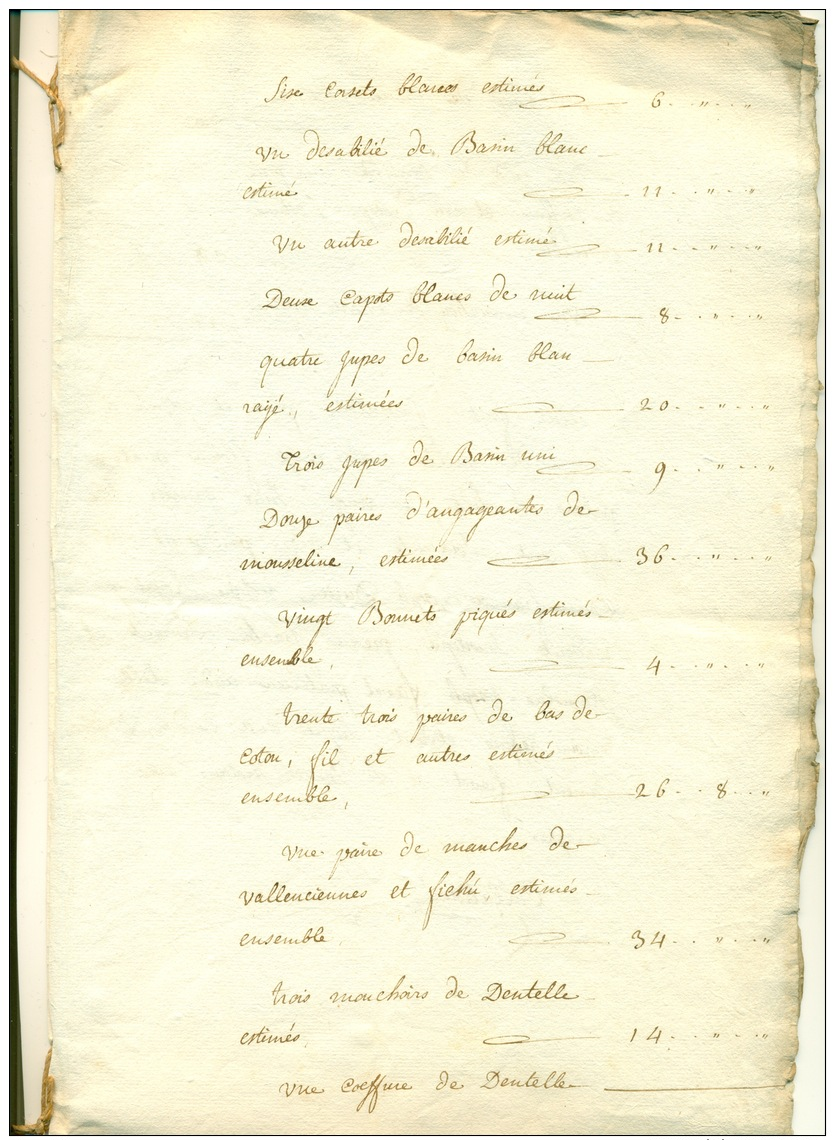 Sixe Corsets blancs estimés 6 . . " . . "
Un desabilié de Basin blanc
estimé 11 . . " . . "
Un autre desabilié estimé 11 . . " . . "
Deuxe Capots blancs de nuit 8 . . " . . "
quatre jupes de basin blan
rayé, estimées 20 . . " . . "
Trois jupes de Basin uni 9 . . " . . "
Douze paires d'angageantes de
mousseline, estimées 36 . . " . . "
Vingt Bonnets piqués estimés
ensemble, 4 . . " . . "
trente trois paires de bas de
Coton, fil et autres estimés
ensemble, 26 . . 8 . . "
une paire de manches de
vallenciennes et fichú, estimés
ensemble. 34 . . " . . "
trois mouchoirs de Dentelle
estimés 14 . . " . . "
une Coeffure de Dentelle